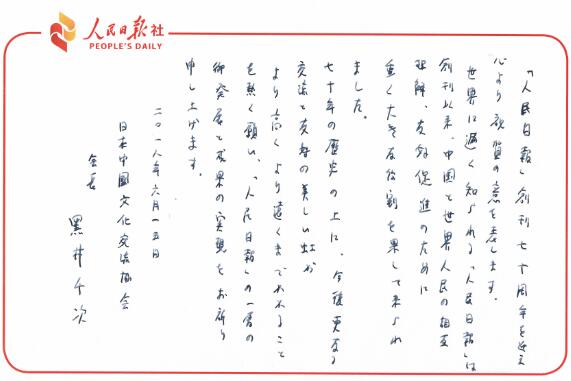 人民日报社
PEOPLE'S DAILY
「人民日報」創刊七十周年を迎え
心より祝賀の意を表します。
世界に遍く知られる「人民日報」は
創刊以来、中国と世界人民の相互
理解、友好促進のために
重く大きな役割を果して来られ
ました。
七十年の歴史の上に、今後更なる
交流と友好の美しい虹が
より高く、より遠くまでかかること
を熱く願い、「人民日報」の一層の
御発展と成果の実現をお祈り
申し上げます。
二〇一八年六月一五日
日本中國文化交流協会
会長
黒井千次